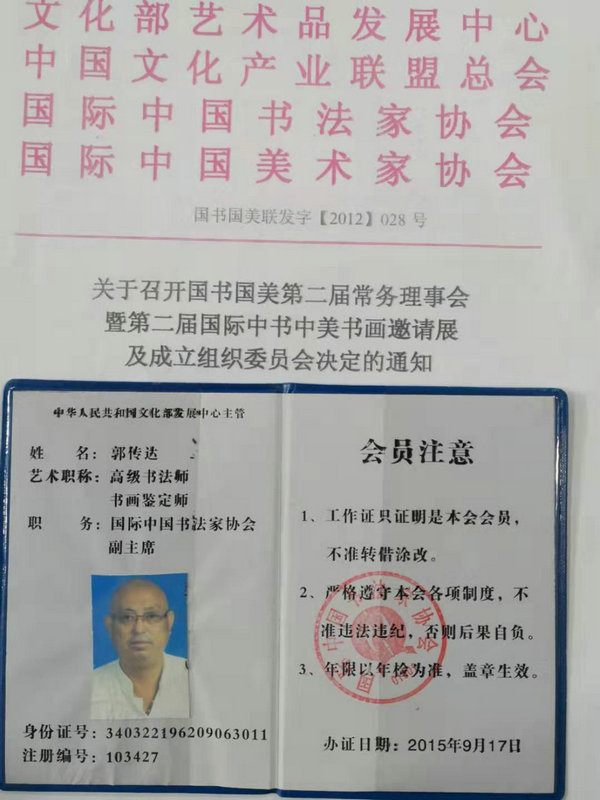 文化部艺术品发展中心
中国文化产业联盟总会
国际中国书法家协会
国际中国美术家协会
国书国美联发字【2012】028号
关于召开国书国美第二届常务理事会
暨第二届国际中书中美书画邀请展
及成立组织委员会决定的通知
中华人民共和国文化部发展中心主管
姓 名：郭传达
艺术职称：高级书法师
书画鉴定师
职 务：国际中国书法家协会
副主席
身份证号：340322196209063011
注册编号：103427
会员注意
1、工作证只证明是本会会员，
不准转借涂改。
2、严格遵守本会各项制度，不
准违法违纪，否则后果自负。
3、年限以年检为准，盖章生效。
办证日期：2015年9月17日